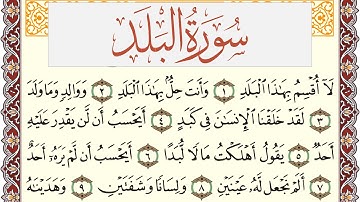 سُورَةُ الْبَلَدِ
لَآ أُقْسِمُ بِهَٰذَا ٱلْبَلَدِ ١ وَأَنتَ حِلٌّۢ بِهَٰذَا ٱلْبَلَدِ ٢ وَوَالِدٍ وَمَا وَلَدَ
٣ لَقَدْ خَلَقْنَا ٱلْإِنسَٰنَ فِى كَبَدٍ ٤ أَيَحْسَبُ أَن لَّن يَقْدِرَ عَلَيْهِ
أَحَدٌ ٥ يَقُولُ أَهْلَكْتُ مَالًا لُّبَدًا ٦ أَيَحْسَبُ أَن لَّمْ يَرَهُۥٓ أَحَدٌ
٧ أَلَمْ نَجْعَل لَّهُۥ عَيْنَيْنِ ٨ وَلِسَانًا وَشَفَتَيْنِ ٩ وَهَدَيْنَٰهُ